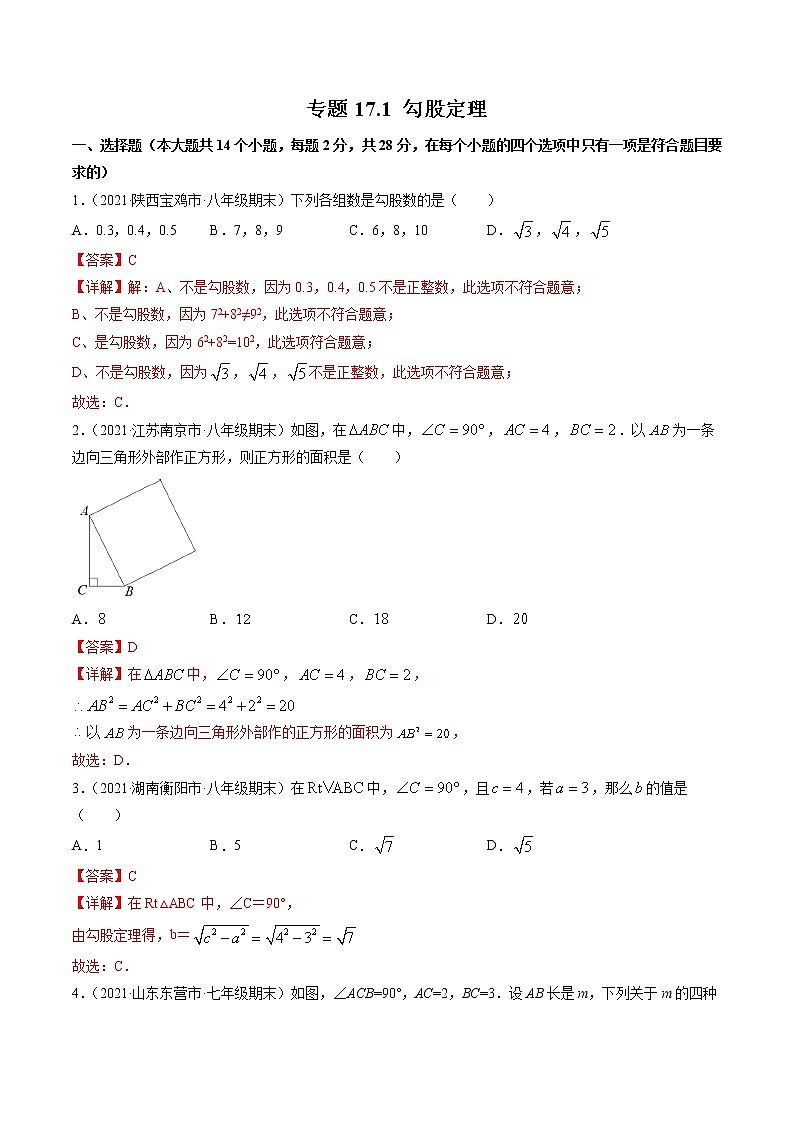 专题 17.1 勾股定理
一、选择题（本大题共 14 个小题，每题 2 分，共 28 分，在每个小题的四个选项中只有一项是符合题目要
求的）
1.（2021·陕西宝鸡市·八年级期末）下列各组数是勾股数的是（　　）
A．0.3，0.4，0.5 B．7，8，9 C．6，8，10 D．√3，√4，√5
【答案】C
【详解】解：A、不是勾股数，因为 0.3，0.4，0.5 不是正整数，此选项不符合题意；
B、不是勾股数，因为 7²+8²≠9²，此选项不符合题意；
C、是勾股数，因为 6²+8²=10²，此选项符合题意；
D、不是勾股数，因为 √3，√4，√5 不是正整数，此选项不符合题意；
故选：C．
2.（2021·江苏南京市·八年级期末）如图，在 ΔABC 中，∠C = 90°，AC = 4，BC = 2．以 AB 为一条
边向三角形外部作正方形，则正方形的面积是（　　）
A
C
B
A．8 B．12 C．18 D．20
【答案】D
【详解】在 ΔABC 中，∠C = 90°，AC = 4，BC = 2，
∴ AB² = AC² + BC² = 4² + 2² = 20
∴ 以 AB 为一条边向三角形外部作的正方形的面积为 AB² = 20，
故选：D．
3.（2021·湖南衡阳市·八年级期末）在 Rt√ABC 中，∠C = 90°，且 c = 4，若 a = 3，那么 b 的值是
（　　）
A．1 B．5 C．√7 D．√5
【答案】C
【详解】在 Rt△ABC 中，∠C＝90°，
由勾股定理得，b＝√(c² − a²) = √(4² − 3²) = √7
故选：C．
4.（2021·山东东营市·七年级期末）如图，∠ACB=90°，AC=2，BC=3．设 AB 长是 m，下列关于 m 的四种